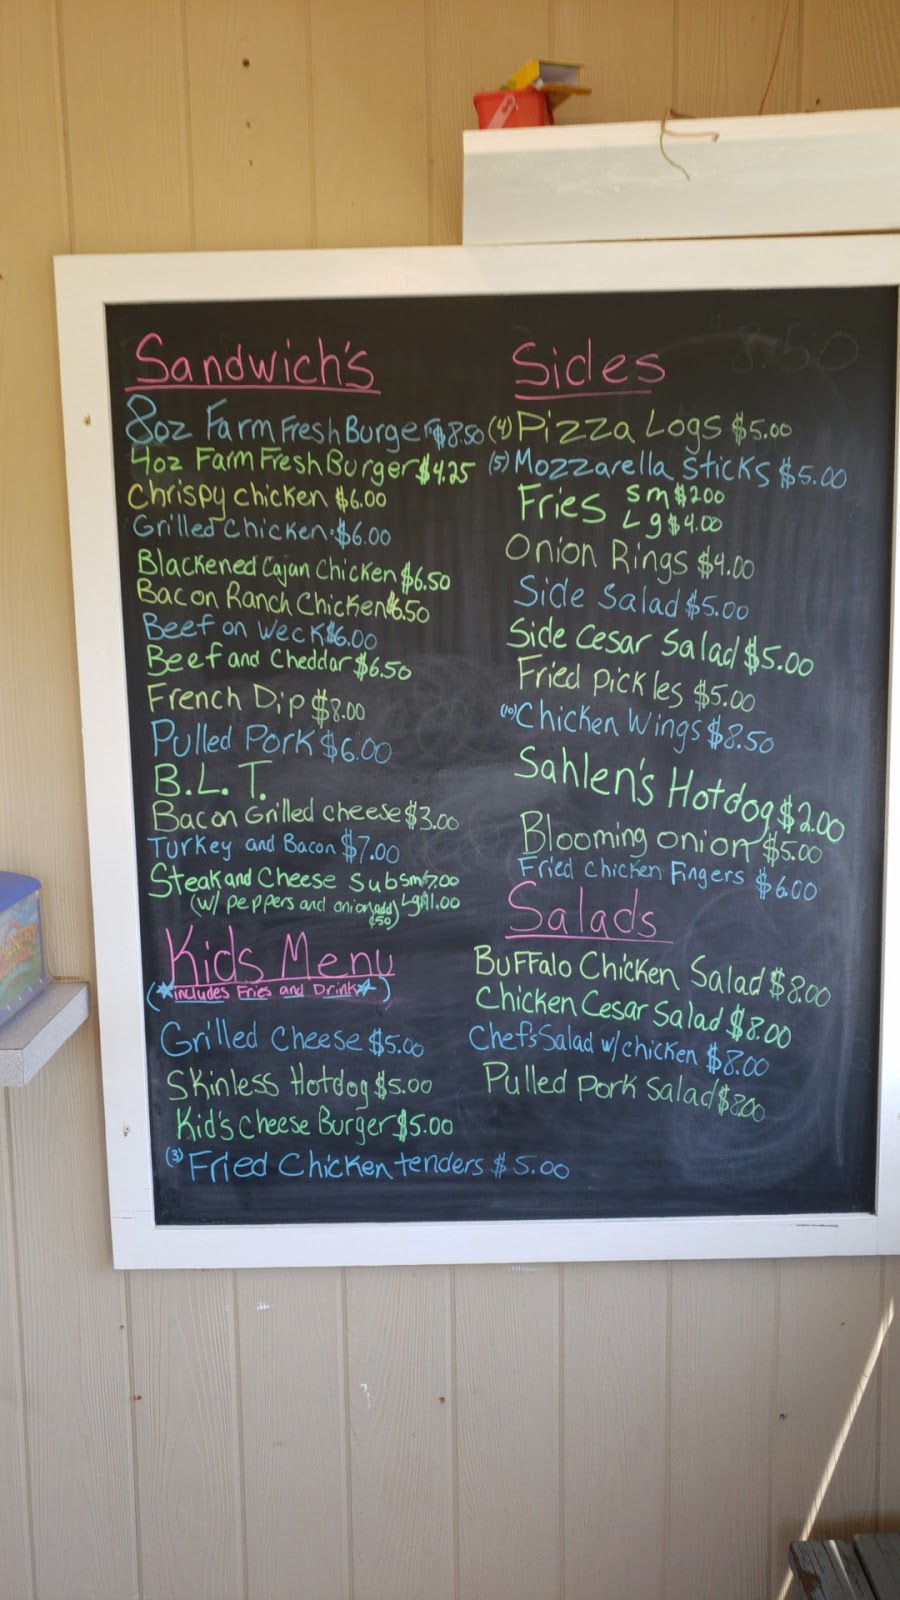 Sandwich's
8oz Farm Fresh Burger $8.50
4oz Farm Fresh Burger $4.25
Chrispy chicken $6.00
Grilled Chicken $6.00
Blackened Cajun Chicken $6.50
Bacon Ranch Chicken $6.50
Beef on Weck $6.00
Beef and Cheddar $6.50
French Dip $8.00
Pulled Pork $6.00
B.L.T.
Bacon Grilled cheese $3.00
Turkey and Bacon $7.00
Steak and Cheese Sub sm $7.00
(w/ peppers and onion add $.50) Lg $11.00
Kids Menu
(*includes Fries and Drink*)
Grilled Cheese $5.00
Skinless Hotdog $5.00
Kid's Cheese Burger $5.00
(3) Fried Chicken tenders $5.00
Sides
8.50
(4) Pizza Logs $5.00
(5) Mozzarella Sticks $5.00
Fries sm $2.00
Lg $4.00
Onion Rings $4.00
Side Salad $5.00
Side Cesar Salad $5.00
Fried pickles $5.00
(10) Chicken Wings $8.50
Sahlen's Hotdog $2.00
Blooming onion $5.00
Fried Chicken Fingers $6.00
Salads
Buffalo Chicken Salad $8.00
Chicken Cesar Salad $8.00
Chefs Salad w/chicken $8.00
Pulled Pork Salad $8.00